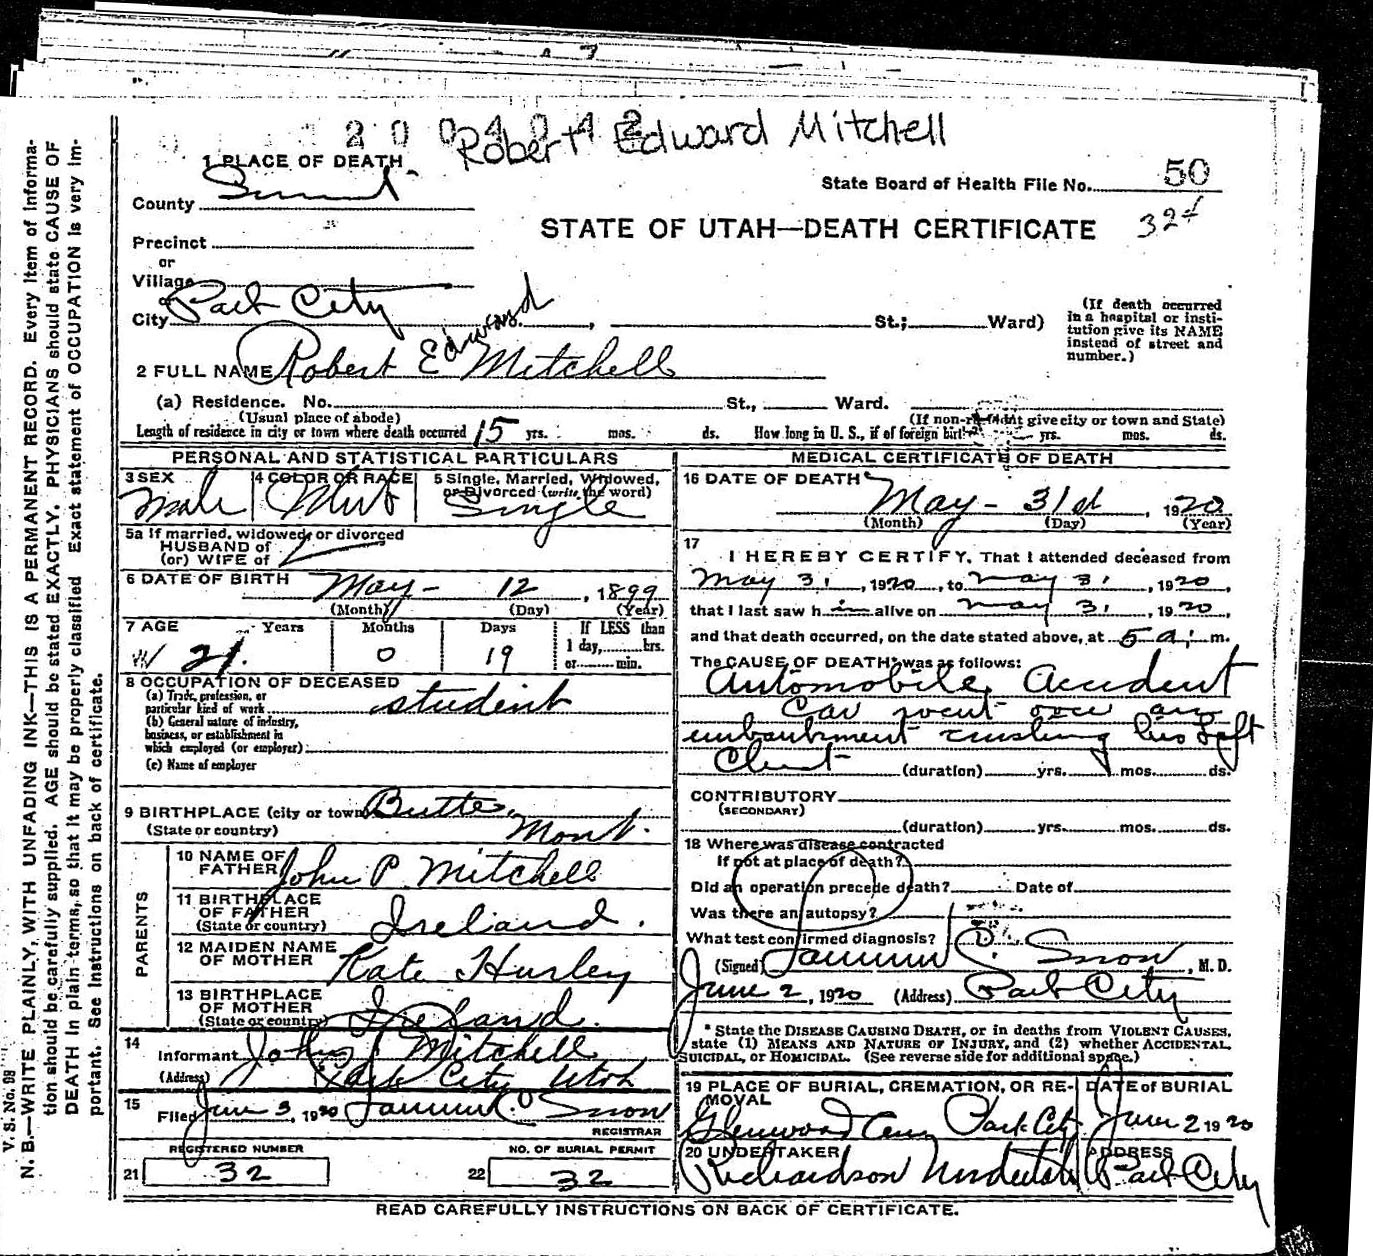 2004042
Robert Edward Mitchell
1 PLACE OF DEATH
State Board of Health File No. 50
County Summit
STATE OF UTAH—DEATH CERTIFICATE
324
Precinct
or
Village
or
City Park City St.; Ward)
(If death occurred in a hospital or institution give its NAME instead of street and number.)
2 FULL NAME Robert Edward Mitchell
(a) Residence. No. St., Ward.
(Usual place of abode) (If non-resident give city or town and State)
Length of residence in city or town where death occurred 15 yrs. mos. ds. How long in U. S., if of foreign birth? yrs. mos. ds.
PERSONAL AND STATISTICAL PARTICULARS
3 SEX 4 COLOR OR RACE 5 Single, Married, Widowed, or Divorced (write the word)
male White Single
5a If married, widowed, or divorced
HUSBAND of
(or) WIFE of
6 DATE OF BIRTH May - 12, 1899
(Month) (Day) (Year)
7 AGE Years Months Days If LESS than
1 day, hrs.
or min.
21. 0 19
8 OCCUPATION OF DECEASED
(a) Trade, profession, or
particular kind of work student
(b) General nature of industry,
business, or establishment in
which employed (or employer)
(c) Name of employer
9 BIRTHPLACE (city or town) Butte,
(State or country) Mont.
PARENTS
10 NAME OF FATHER John P Mitchell
11 BIRTHPLACE OF FATHER
(State or country) Ireland.
12 MAIDEN NAME OF MOTHER Kate Hurley
13 BIRTHPLACE OF MOTHER
(State or country) Ireland.
14
Informant John P Mitchell
(Address) Park City Utah
15
Filed June 3, 1920 C. Snow
REGISTRAR
REGISTERED NUMBER NO. OF BURIAL PERMIT
21 32 22 32
MEDICAL CERTIFICATE OF DEATH
16 DATE OF DEATH
May - 31st, 1920
(Month) (Day) (Year)
17
I HEREBY CERTIFY, That I attended deceased from
May 31, 1920, to May 31, 1920,
that I last saw him alive on May 31, 1920,
and that death occurred, on the date stated above, at 5 a. m.
The CAUSE OF DEATH* was as follows:
Automobile Accident
Car went over an
embankment crushing his Left
Chest (duration) yrs. mos. ds.
CONTRIBUTORY
(SECONDARY)
(duration) yrs. mos. ds.
18 Where was disease contracted
If not at place of death?
Did an operation precede death? Date of
Was there an autopsy?
What test confirmed diagnosis?
(Signed) C. Snow, M. D.
June 2, 1920 (Address) Park City
* State the DISEASE CAUSING DEATH, or in deaths from VIOLENT CAUSES,
state (1) MEANS AND NATURE OF INJURY, and (2) whether ACCIDENTAL,
SUICIDAL, or HOMICIDAL. (See reverse side for additional space.)
19 PLACE OF BURIAL, CREMATION, OR REMOVAL DATE of BURIAL
Glenwood Cem Park City June 2 1920
20 UNDERTAKER ADDRESS
Richardson Park City
READ CAREFULLY INSTRUCTIONS ON BACK OF CERTIFICATE.
V. S. No. 98
N. B.—WRITE PLAINLY, WITH UNFADING INK—THIS IS A PERMANENT RECORD. Every item of informa-
tion should be carefully supplied. AGE should be stated EXACTLY. PHYSICIANS should state CAUSE OF
DEATH in plain terms, so that it may be properly classified. Exact statement of OCCUPATION is very im-
portant. See Instructions on back of certificate.